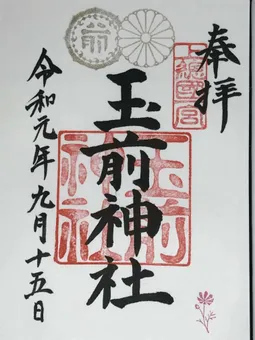 奉拝
上総國一宮
玉前神社
玉前神社
令和元年九月十五日
前